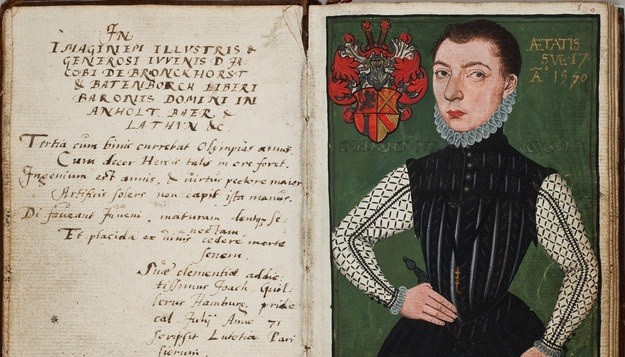 IN
IMAGINEM ILLUSTRIS &
GENEROSI IVVENIS D. JA
COBI DE BRONCKHORST
& BATENBORCH LIBERI
BARONIS DOMINI IN
ANHOLT. BAER &
LATHVN &C.
Tertia cum binis currebat Olympias annis,
Cum decor Herois talis in ore foret.
Ingenium est annis, & virtus pectore maior
Artificis solers non capit ista manus.
Di faveant juveni, maturam dentque se-
nectam
Et placida ex nimis cedere morte
senem.
Suae clementiae addic-
tissimus Joach
Hamburg. pridie
cal. Julij Anno 71
scripsit Lutetiae Pari
siorum.
ÆTATIS
SVÆ 17
Aº 1570